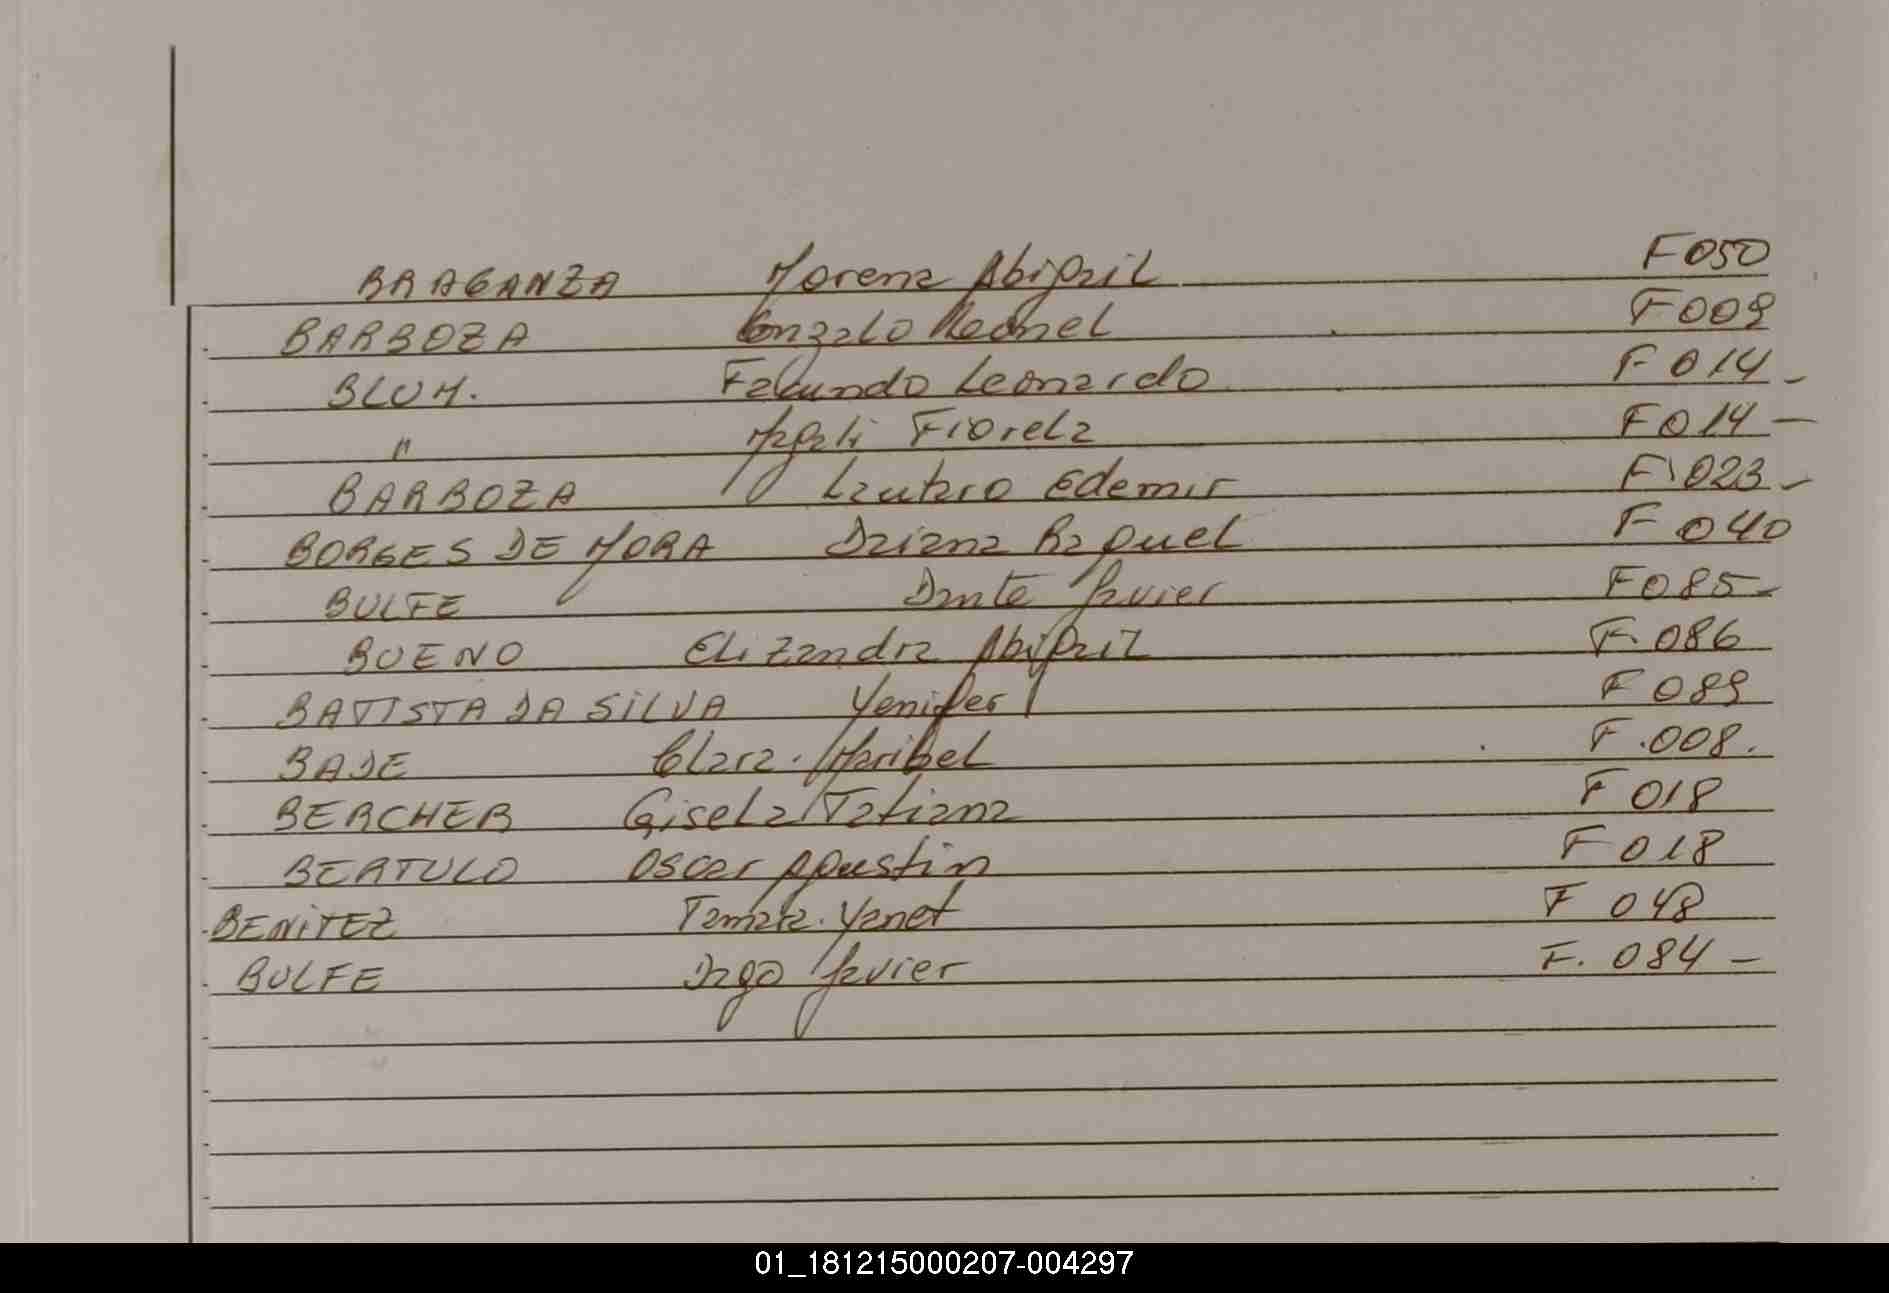 BRAGANZA Morena Abigail F050
BARBOZA Gonzalo Leonel F009
BLUM. Facundo Leonardo F014 -
" Magali Fiorela F014 -
BARBOZA Lautaro Edemir F 023 -
BORGES DE MORA Daiana Raquel F 040
BULFE Dante Javier F085 -
BUENO Elizandra Abigail F. 086
BATISTA DA SILVA Yenifer F 089
BADE Clara. Maribel F.008.
BERCHER Gisela Tatiana F 018
BERTULO Oscar Agustin F 018
BENiTEZ Tamara. Yanet F 048
BULFE Iago Javier F. 084 -
01_181215000207-004297